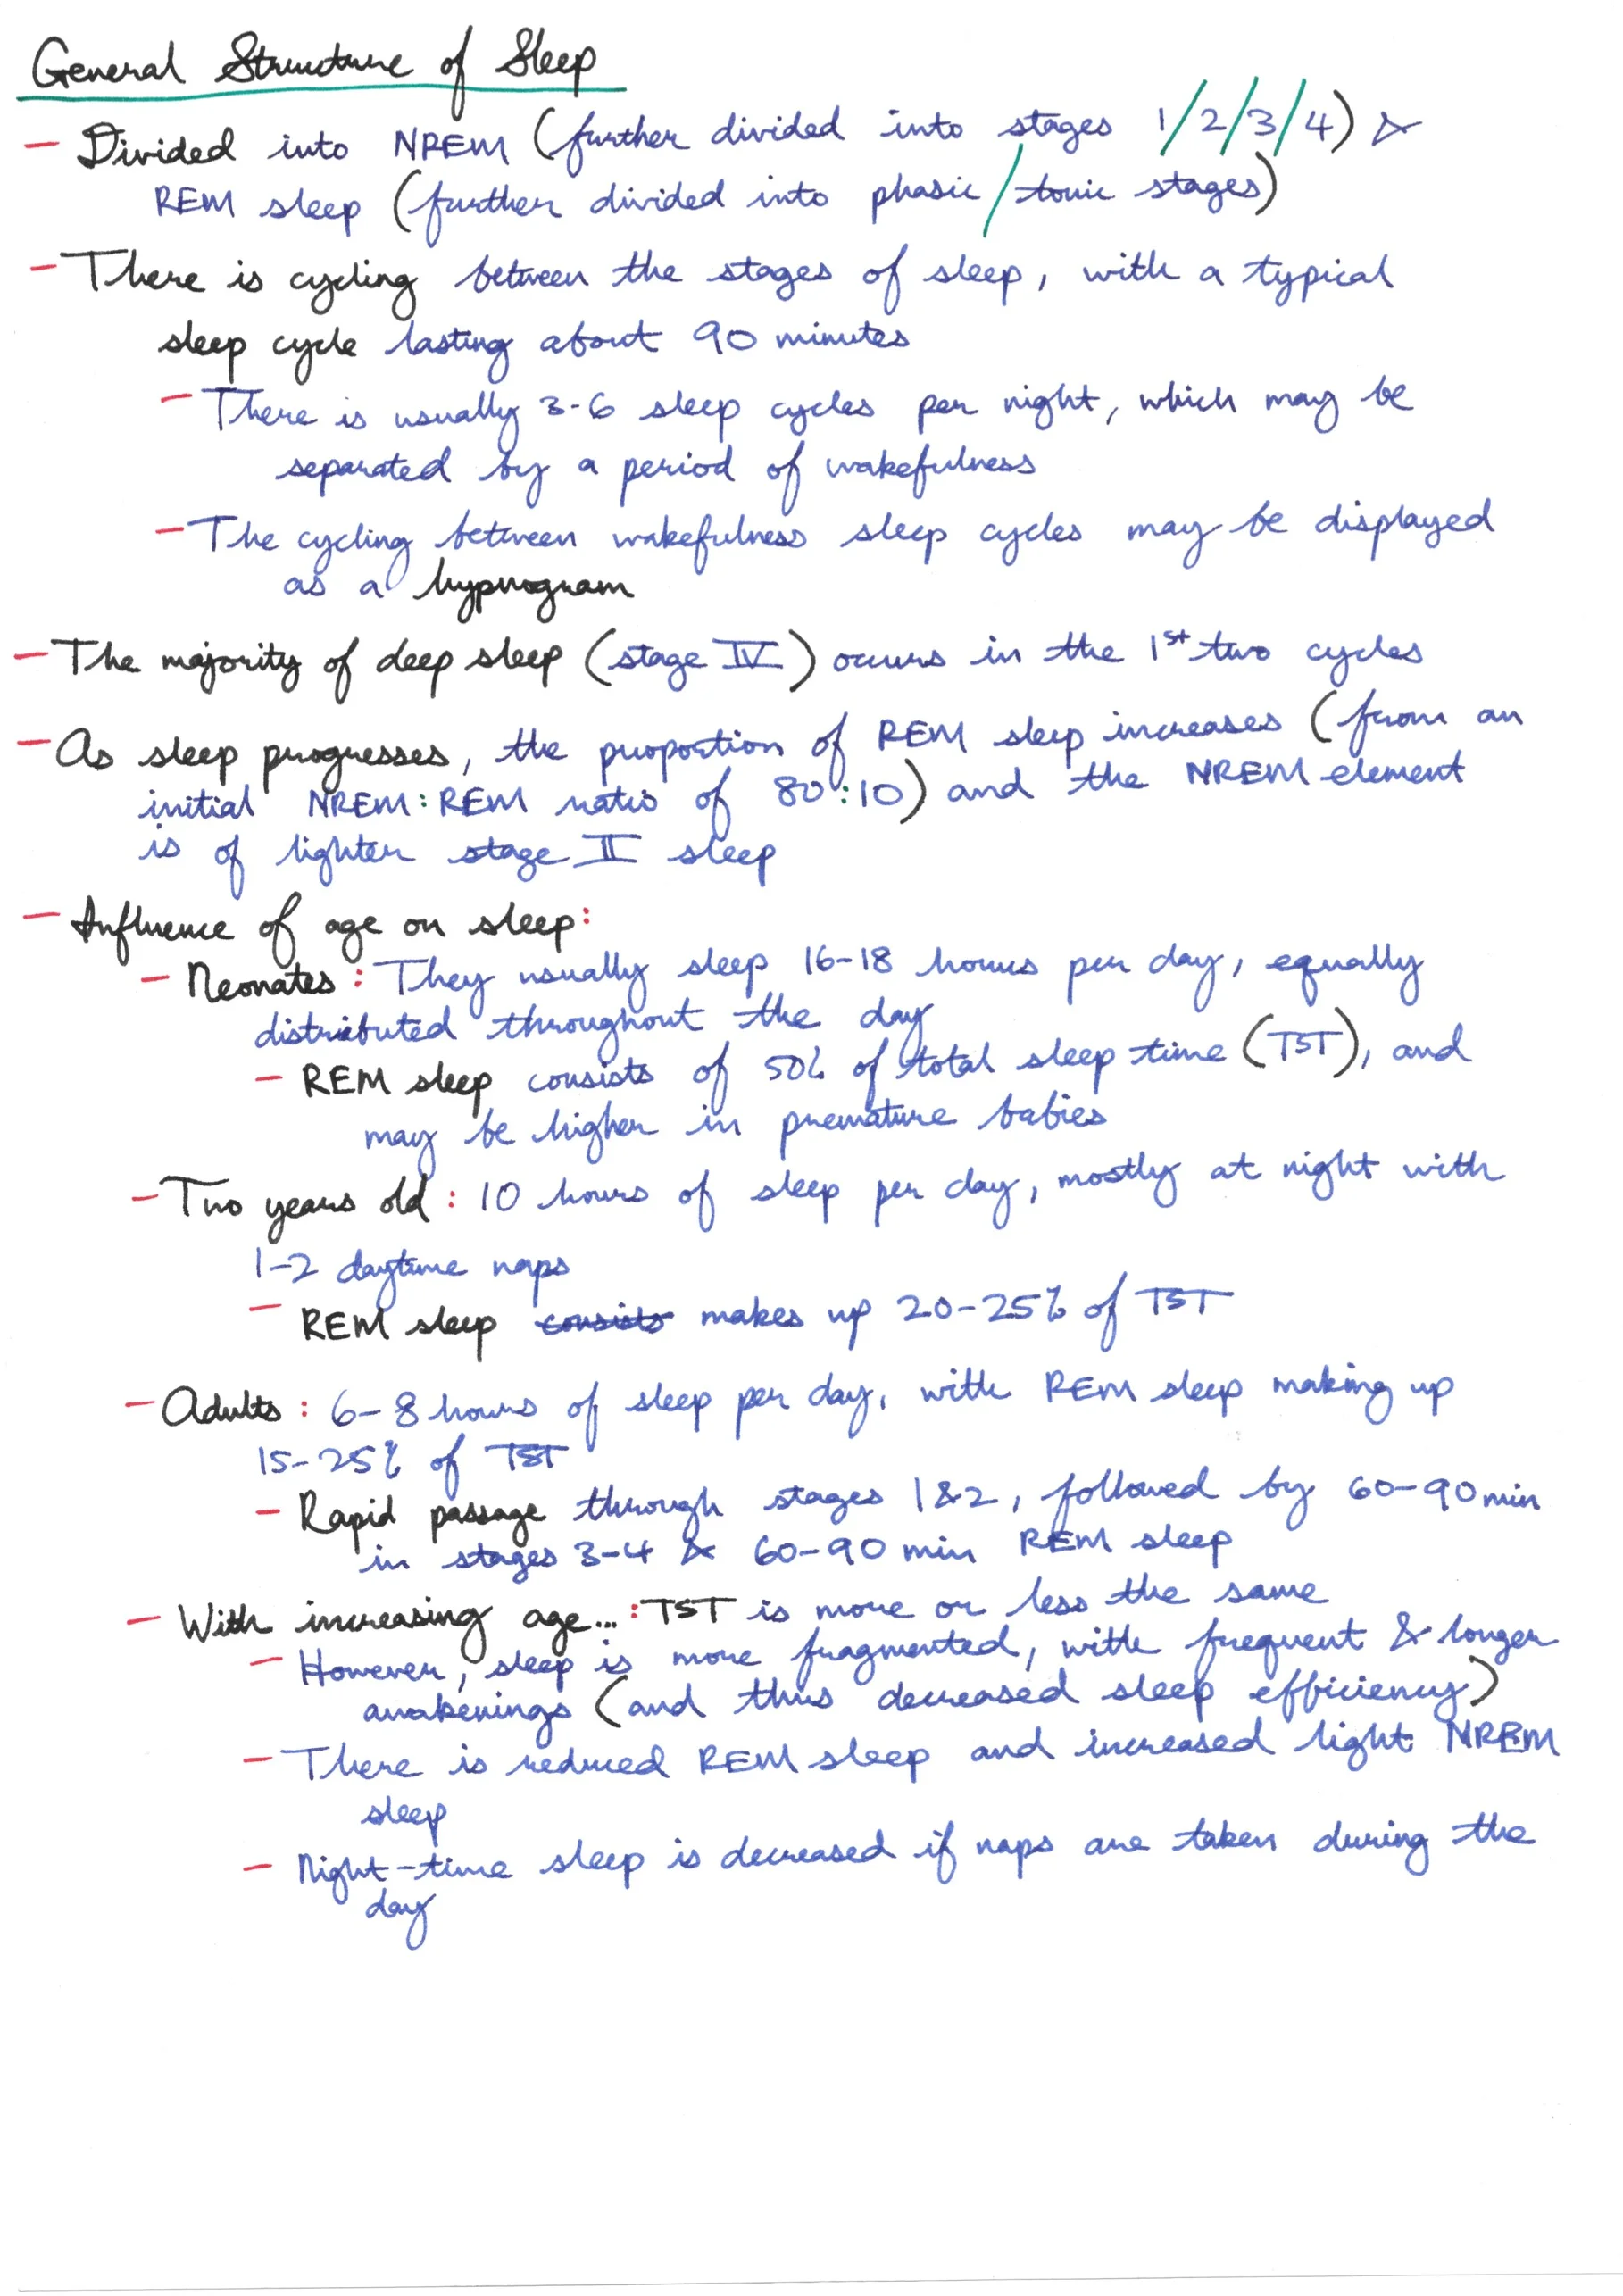 General Structure of Sleep
- Divided into NREM (further divided into stages 1/2/3/4) &
REM sleep (further divided into phasic/tonic stages)
- There is cycling between the stages of sleep, with a typical
sleep cycle lasting about 90 minutes
- There is usually 3-6 sleep cycles per night, which may be
separated by a period of wakefulness
- The cycling between wakefulness sleep cycles may be displayed
as a hypnogram
- The majority of deep sleep (stage IV) occurs in the 1st two cycles
- As sleep progresses, the proportion of REM sleep increases (from an
initial NREM:REM ratio of 80:10) and the NREM element
is of lighter stage II sleep
- Influence of age on sleep:
- Neonates: They usually sleep 16-18 hours per day, equally
distributed throughout the day
- REM sleep consists of 50% of total sleep time (TST), and
may be higher in premature babies
- Two years old: 10 hours of sleep per day, mostly at night with
1-2 daytime naps
- REM sleep consists makes up 20-25% of TST
- Adults: 6-8 hours of sleep per day, with REM sleep making up
15-25% of TST
- Rapid passage through stages 1&2, followed by 60-90min
in stages 3-4 & 60-90 min REM sleep
- With increasing age...: TST is more or less the same
- However, sleep is more fragmented, with frequent & longer
awakenings (and thus decreased sleep efficiency)
- There is reduced REM sleep and increased light NREM
sleep
- Night-time sleep is decreased if naps are taken during the
day